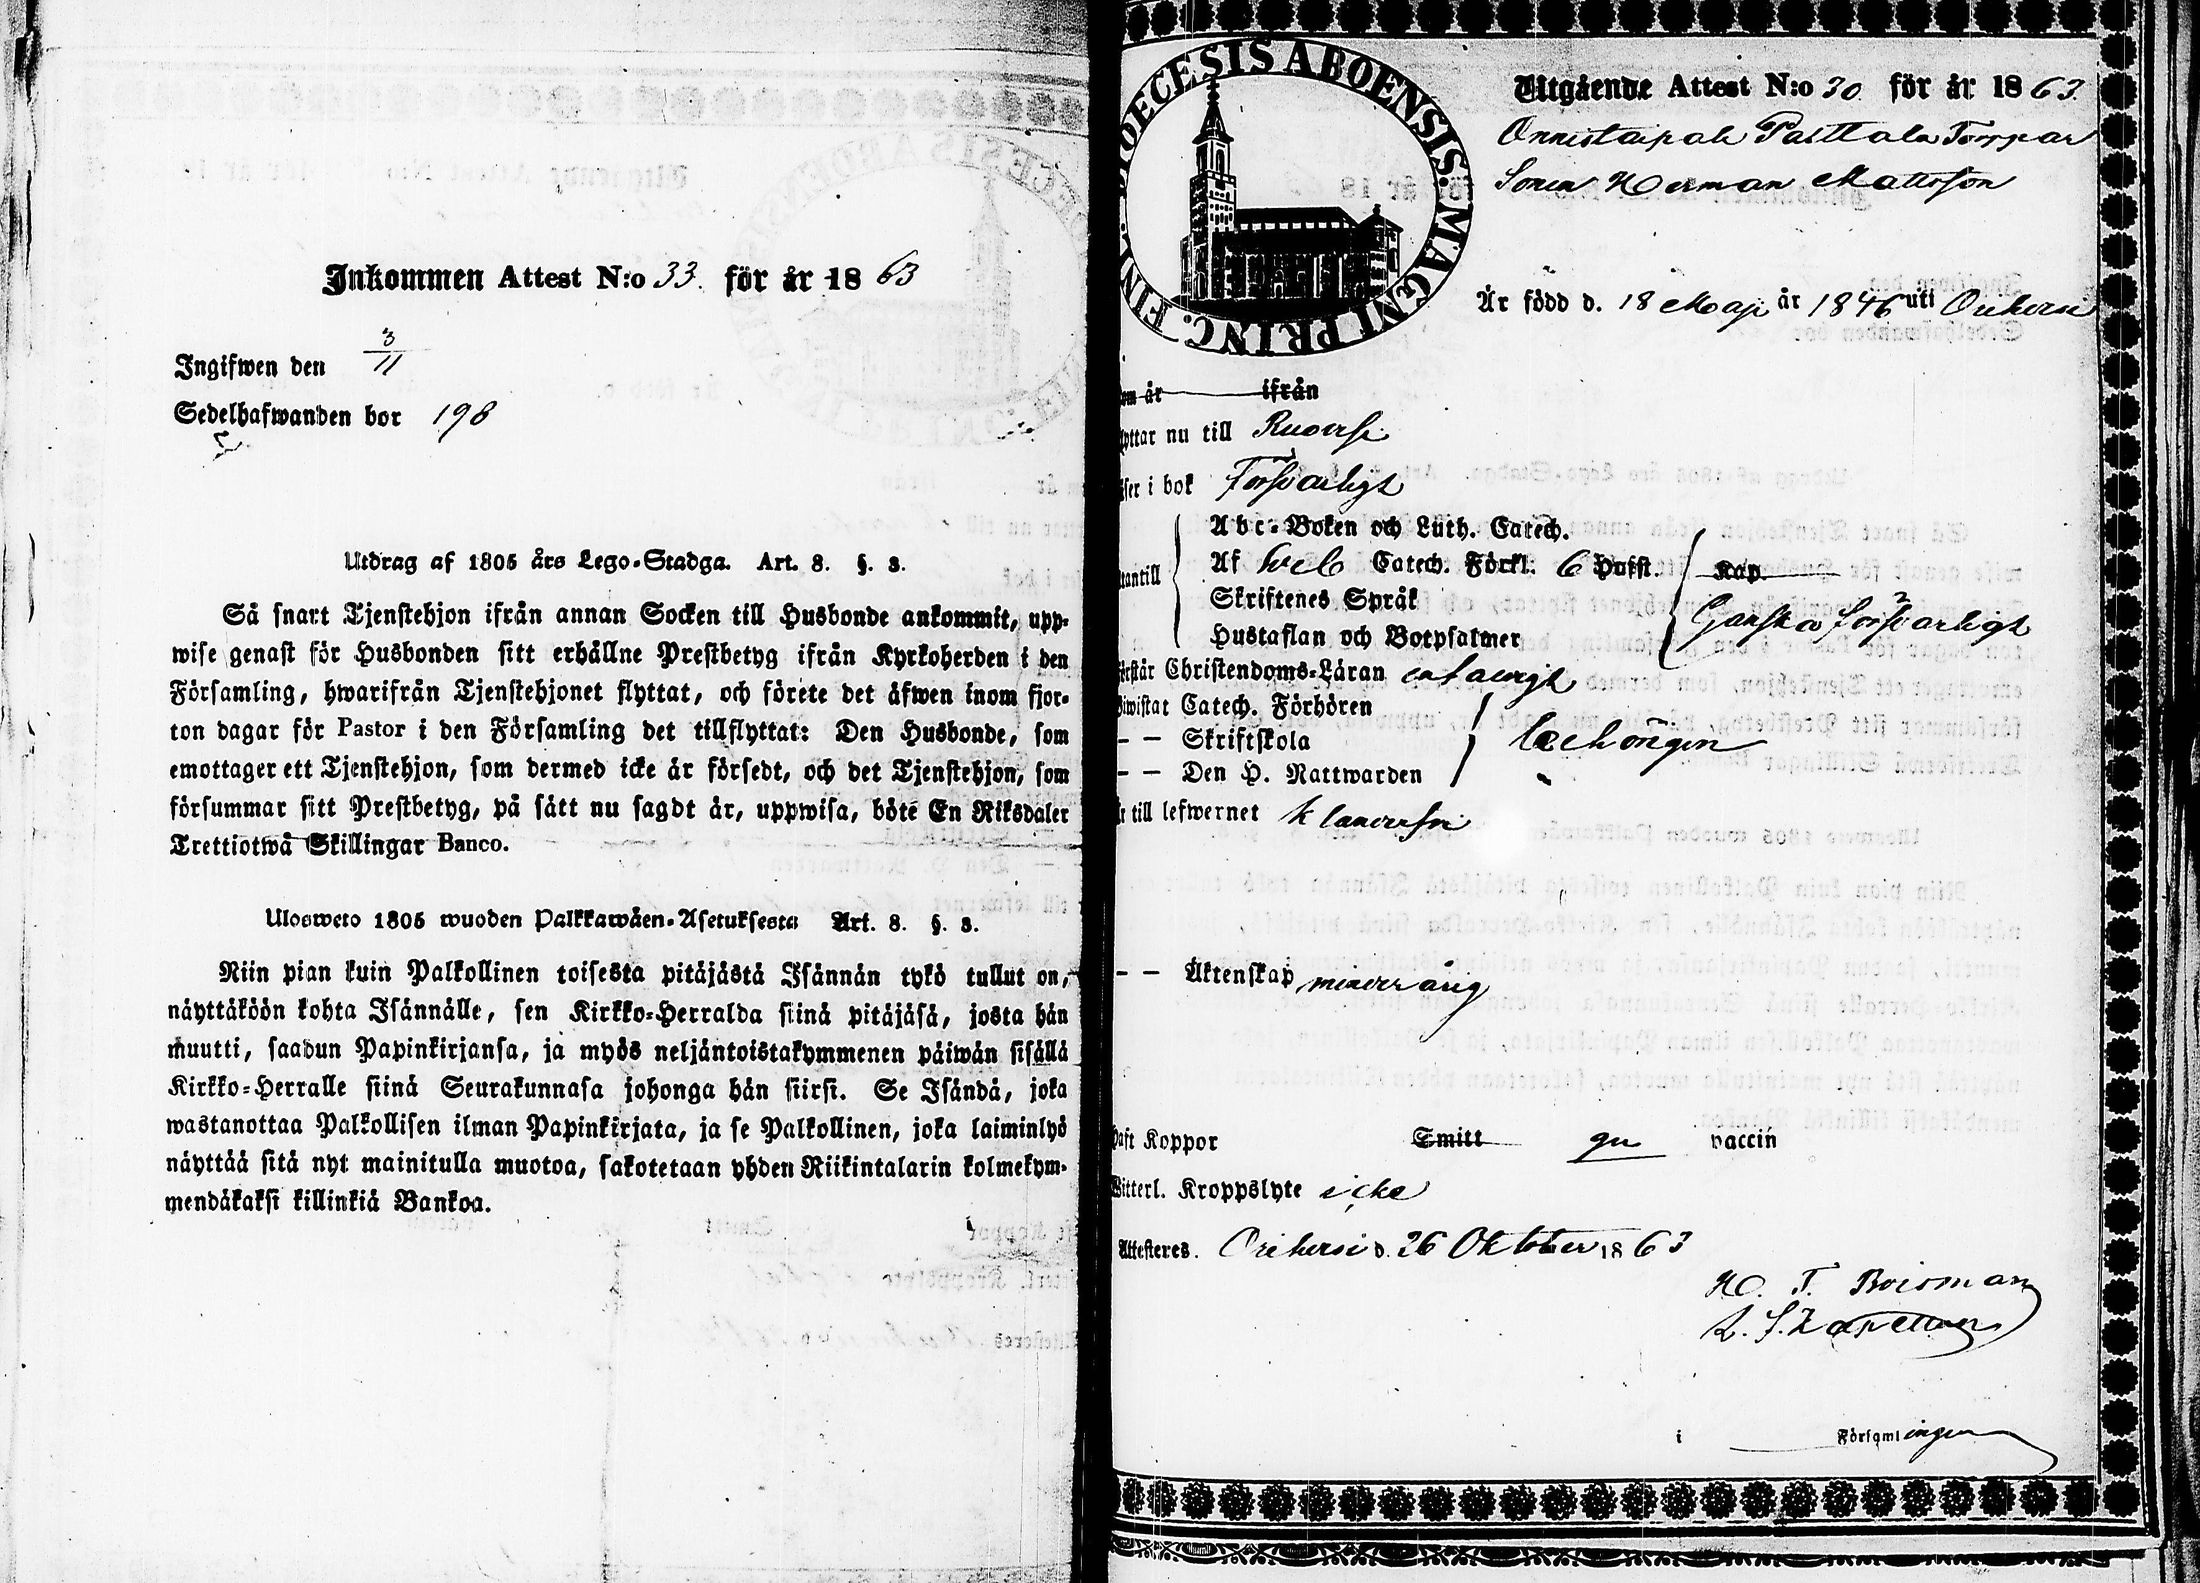 Inkommen Attest N:o 33. för år 1863
Ingifwen den 3/11
Sedelhafwanden bor 198
Utdrag af 1805 års Lego-Stadga. Art. 8. §. 3.
Så snart Tjenstehjon ifrån annan Socken till Husbonde ankommit, upp-
wise genast för Husbonden sitt erhållne Prestbetyg ifrån Kyrkoherden i den
Församling, hwarifrån Tjenstehjonet flyttat, och förete det äfwen inom fjor-
ton dagar för Pastor i den Församling det tillflyttat: Den Husbonde, som
emottager ett Tjenstehjon, som dermed icke är försedt, och det Tjenstehjon, som
försummar sitt Prestbetyg, på sätt nu sagdt är, uppwisa, böte En Riksdaler
Trettiotwå Skillingar Banco.
Ulosweto 1805 wuoden Palkkawäen-Asetuksesta Art. 8. §. 3.
Niin pian kuin Palkollinen toisesta pitäjästä Isännän tykö tullut on,
näyttäköön kohta Isännälle, sen Kirkko-Herralda siinä pitäjäsä, josta hän
muutti, saadun Papinkirjansa, ja myös neljäntoistakymmenen päiwän sisällä
Kirkko-Herralle siinä Seurakunnasa johonga hän siirsi. Se Isändä, joka
wastanottaa Palkollisen ilman Papinkirjata, ja se Palkollinen, joka laiminlyö
näyttää sitä nyt mainitulla muotoa, sakotetaan yhden Riikintalarin kolmekym-
mendäkaksi killinkiä Bankoa.
DIOECESIS ABOENSIS. MAGNI PRINC. FINL.
Utgående Attest N:o 30 för år 1863.
Torpar
Sonen Herman Mattsson
Är född d. 18 Maji år 1846 uti Orihvesi
om år ifrån
lyttar nu till Ruovesi
äser i bok Försvarligt
Abc-Boken och Luth. Catech.
utantill Af Catech. Förkl. 6 Hufst. Kap.
Skriftenes Språk Ganska försvarligt
Hustaflan och Botpsalmer
Förstår Christendoms-Läran enfaldigt
Biwistat Catech. Förhören
- - Skriftskola behörigen
- - Den H. Nattwarden
Är till lefwernet klanderfri
- - Äktenskap minderårig
Haft Koppor Smitt gn vaccin
Witterl. Kroppslyte icke
Attesteres. Orihvesi d. 26 Oktober 1863
H. T. Roisman
i Församlingen